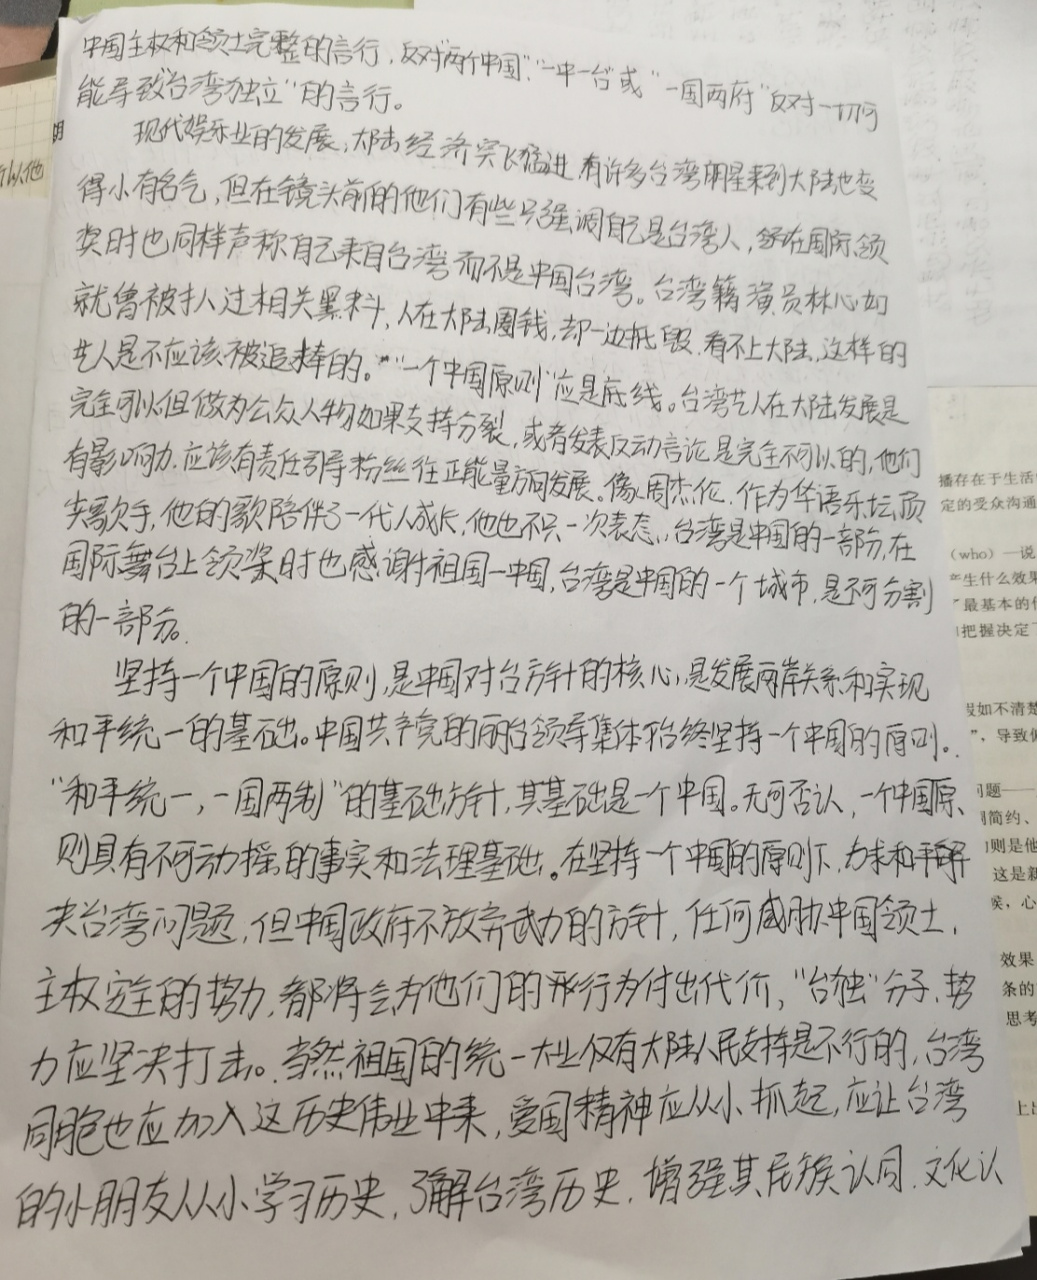 中国主权和领土完整的言行，反对"两个中国"、"一中一台"或"一国两府"反对一切可
能导致"台湾独立"的言行。
现代娱乐业的发展，大陆经济突飞猛进，有许多台湾明星来到大陆也变
得小有名气，但在镜头前的他们有些只强调自己是台湾人，在国际领
奖时也同样声称自己来自台湾而不是中国台湾。台湾籍演员林心如
就曾被扒过相关黑料，人在大陆圈钱，却一边抵毁、看不上大陆，这样的
艺人是不应该被追捧的。"一个中国原则"应是底线。台湾艺人在大陆发展是
完全可以，但做为公众人物如果支持分裂，或者发表反动言论是完全不可以的，他们
有影响力，应该有责任引导粉丝往正能量方向发展。像周杰伦，作为华语乐坛顶
尖歌手，他的歌陪伴了一代人成长，他也不只一次表态，台湾是中国的一部分，在
国际舞台上领奖时也感谢祖国—中国，台湾是中国的一个城市，是不可分割
的一部分。
坚持一个中国的原则，是中国对台方针的核心，是发展两岸关系和实现
和平统一的基础。中国共产党的台领导集体始终坚持一个中国的原则。
"和平统一，一国两制"的基础方针，其基础是一个中国。无可否认，一个中国原
则具有不可动摇的事实和法理基础。在坚持一个中国的原则下，力求和平解
决台湾问题，但中国政府不放弃武力的方针，任何威胁中国领土，
主权完全的势力，都将会为他们的行为付出代价，"台独"分子、势
力应坚决打击。当然祖国的统一大业仅有大陆人民支持是不行的，台湾
同胞也应加入这历史伟业中来，爱国精神应从小抓起，应让台湾
的小朋友从小学习历史，了解台湾历史，增强其民族认同、文化认
明
以他
播存在于生活
定的受众沟通
（who）一说
产生什么效果
了最基本的
把握决定
设如不清楚
"，导致
问题——
简约、
则是他
这是新
候，心
效果
条的
思考
上出